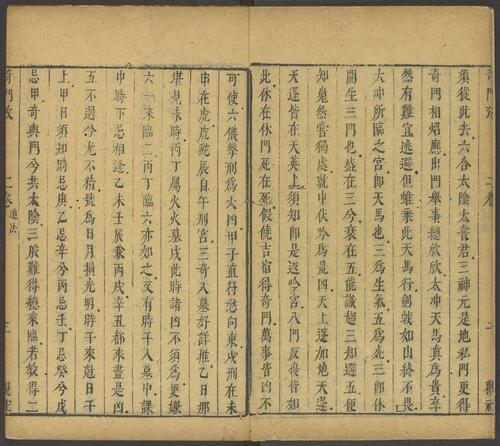 須從此去六合太陰太龍君三神元是地私門更得
奇門相照應出門舉事總欣欣太冲天馬最為貴卒
然有難宜逃避但能乘此天馬行劍戟如山終不畏
大冲所臨之宮即天馬也三為生氣五為死三即休
開生三門也盛在三兮衰在五能識趨三知避五便
知巍然當獨處就中伏吟為最凶天上蓬加地天蓬
天蓬皆在天英上須知即是返吟宮八門反復皆如
此休在休門死在死假饒吉宿得奇門萬事皆凶不
可使六儀擊刑為大凶甲子直符愁向東戌刑在未
申在虎虎蛇辰自午刑宮三奇入墓好詳推乙日那
堪見未時丙丁屬火火墓戌此時諸凶不須為更嫌
六乙來臨二丙丁臨六亦如之又有時干入墓中課
中時下忌相逢乙未壬辰兼丙戌辛丑都來盡是凶
五不遇兮光不精號為日月損光明時干來尅日干
上甲日須知時忌庚乙忌辛兮丙忌壬丁忌癸兮戊
忌甲奇與門兮共太陰三般難得總來臨若教得二
奇門攷 二卷 遁法